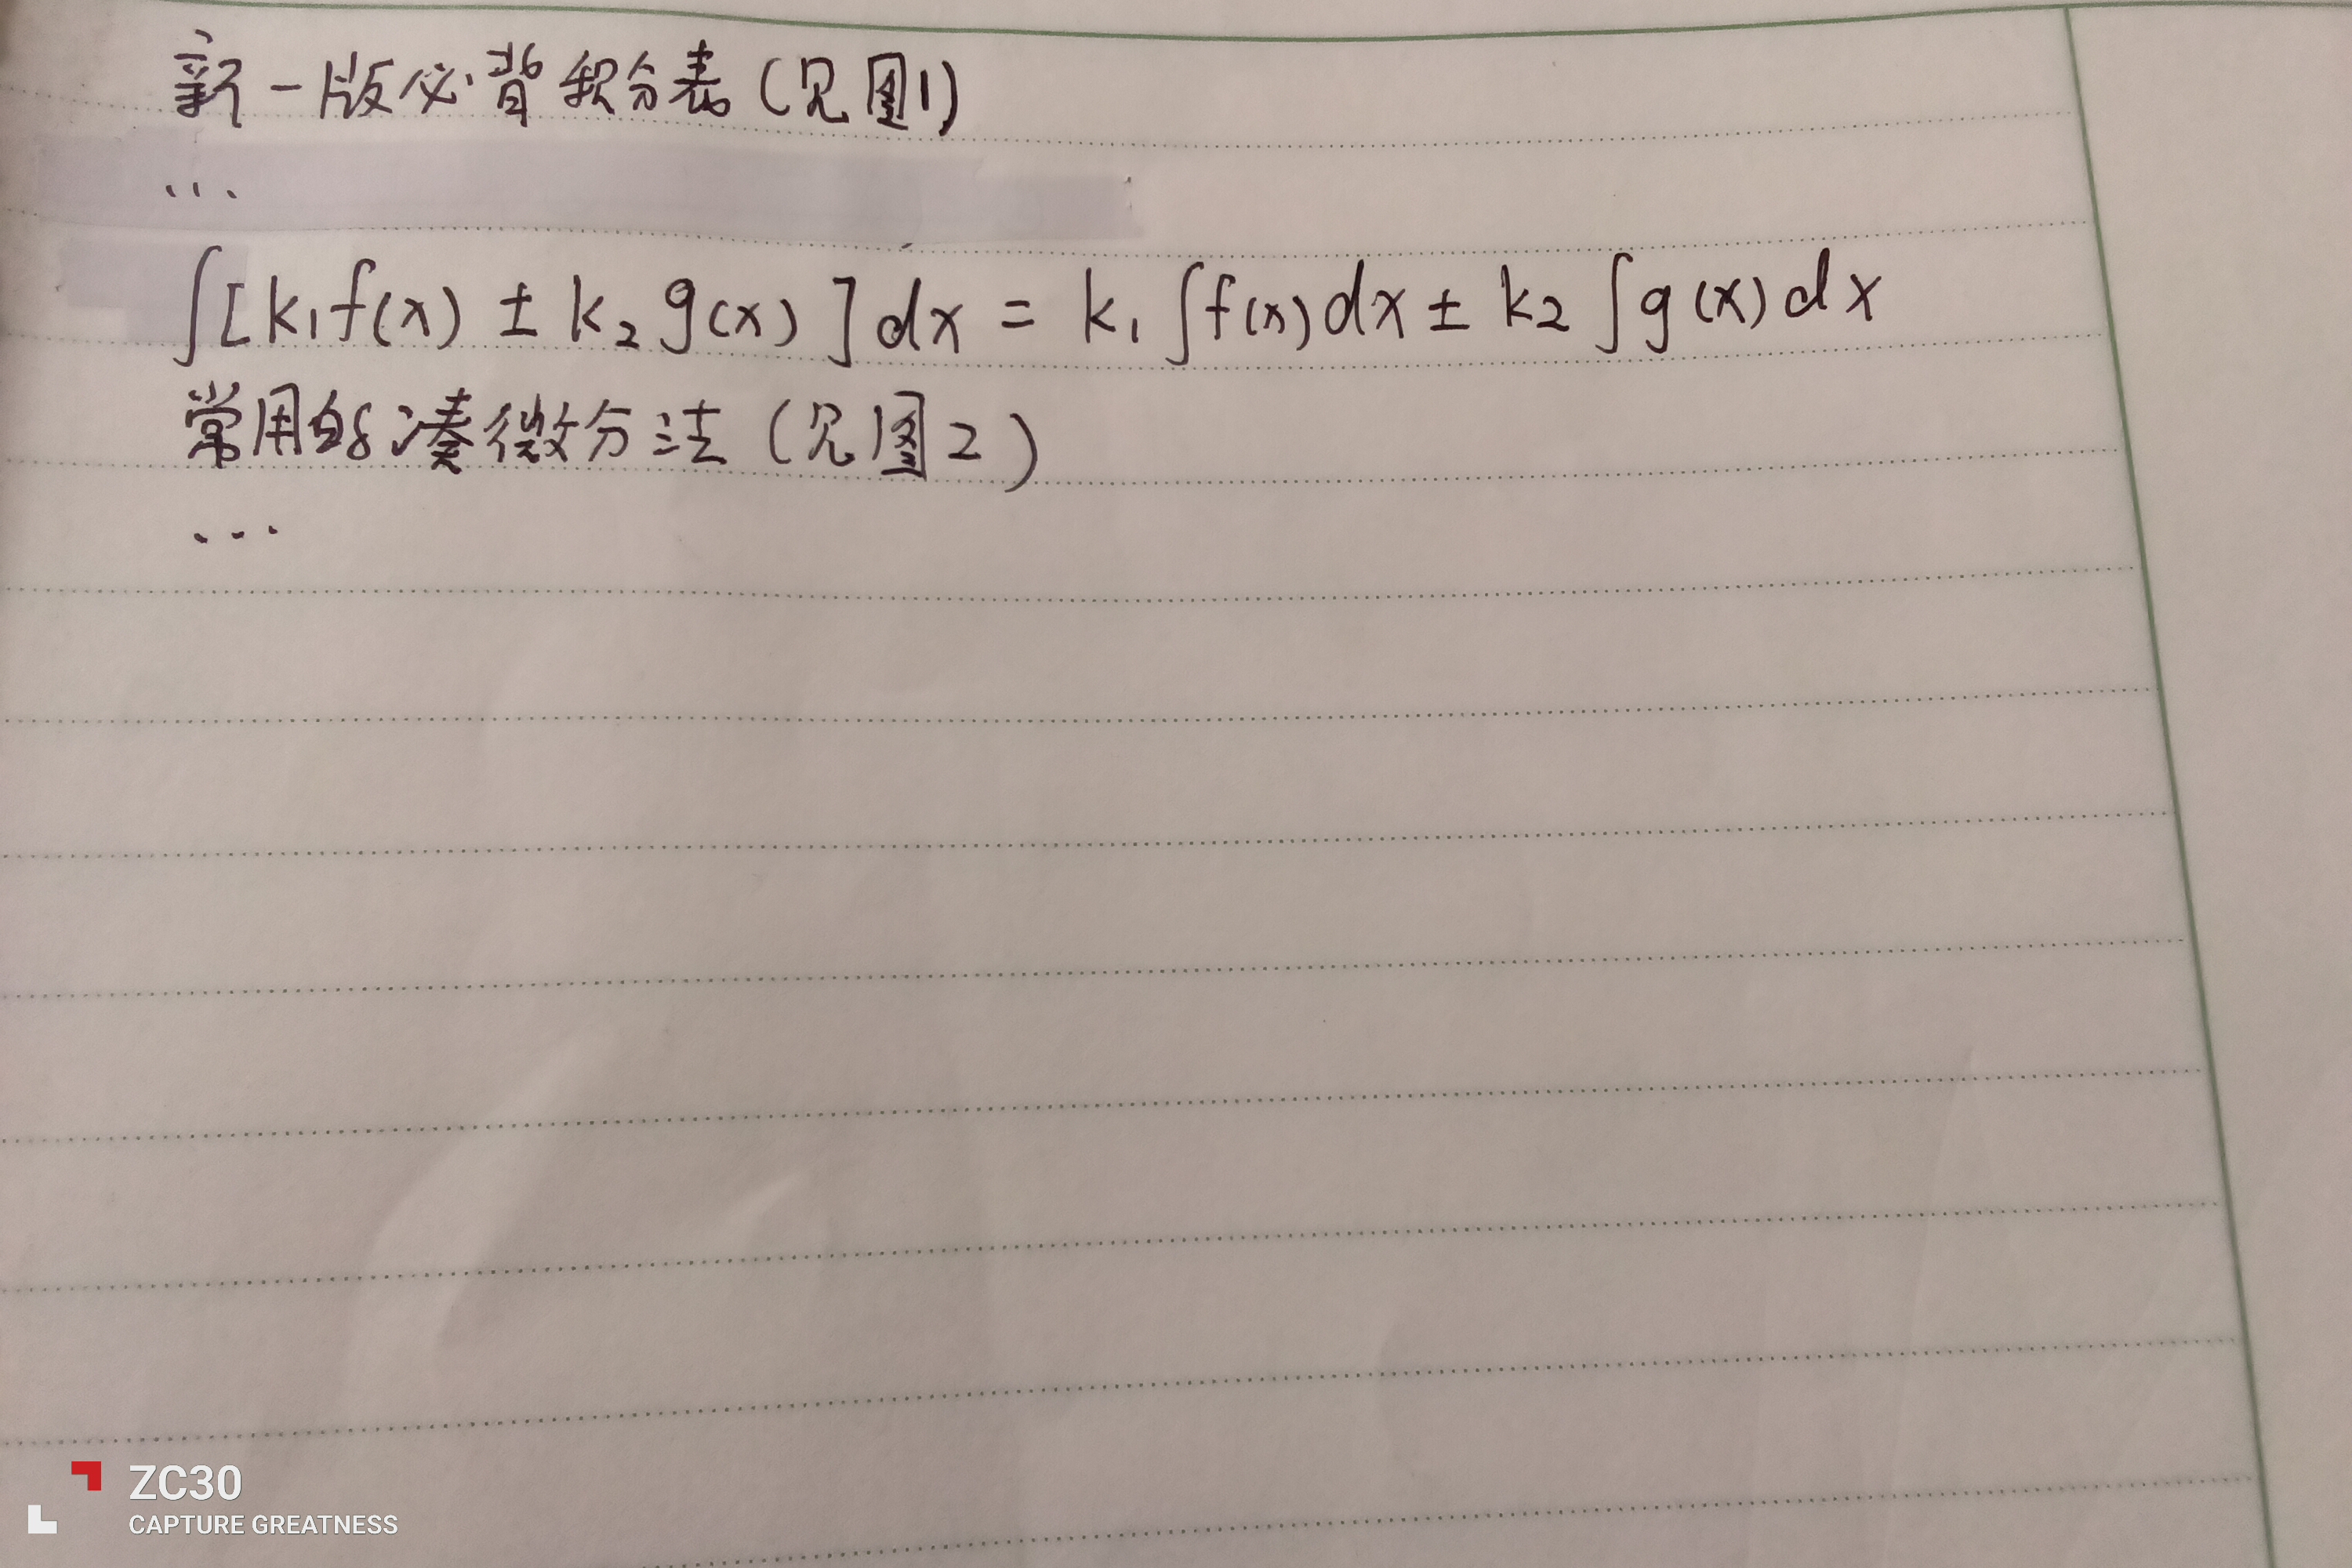 新一版必背积分表(见图1)
...
∫[k₁f(x) ± k₂g(x)]dx = k₁∫f(x)dx ± k₂∫g(x)dx
常用的凑微分法(见图2)
...
ZC30
CAPTURE GREATNESS